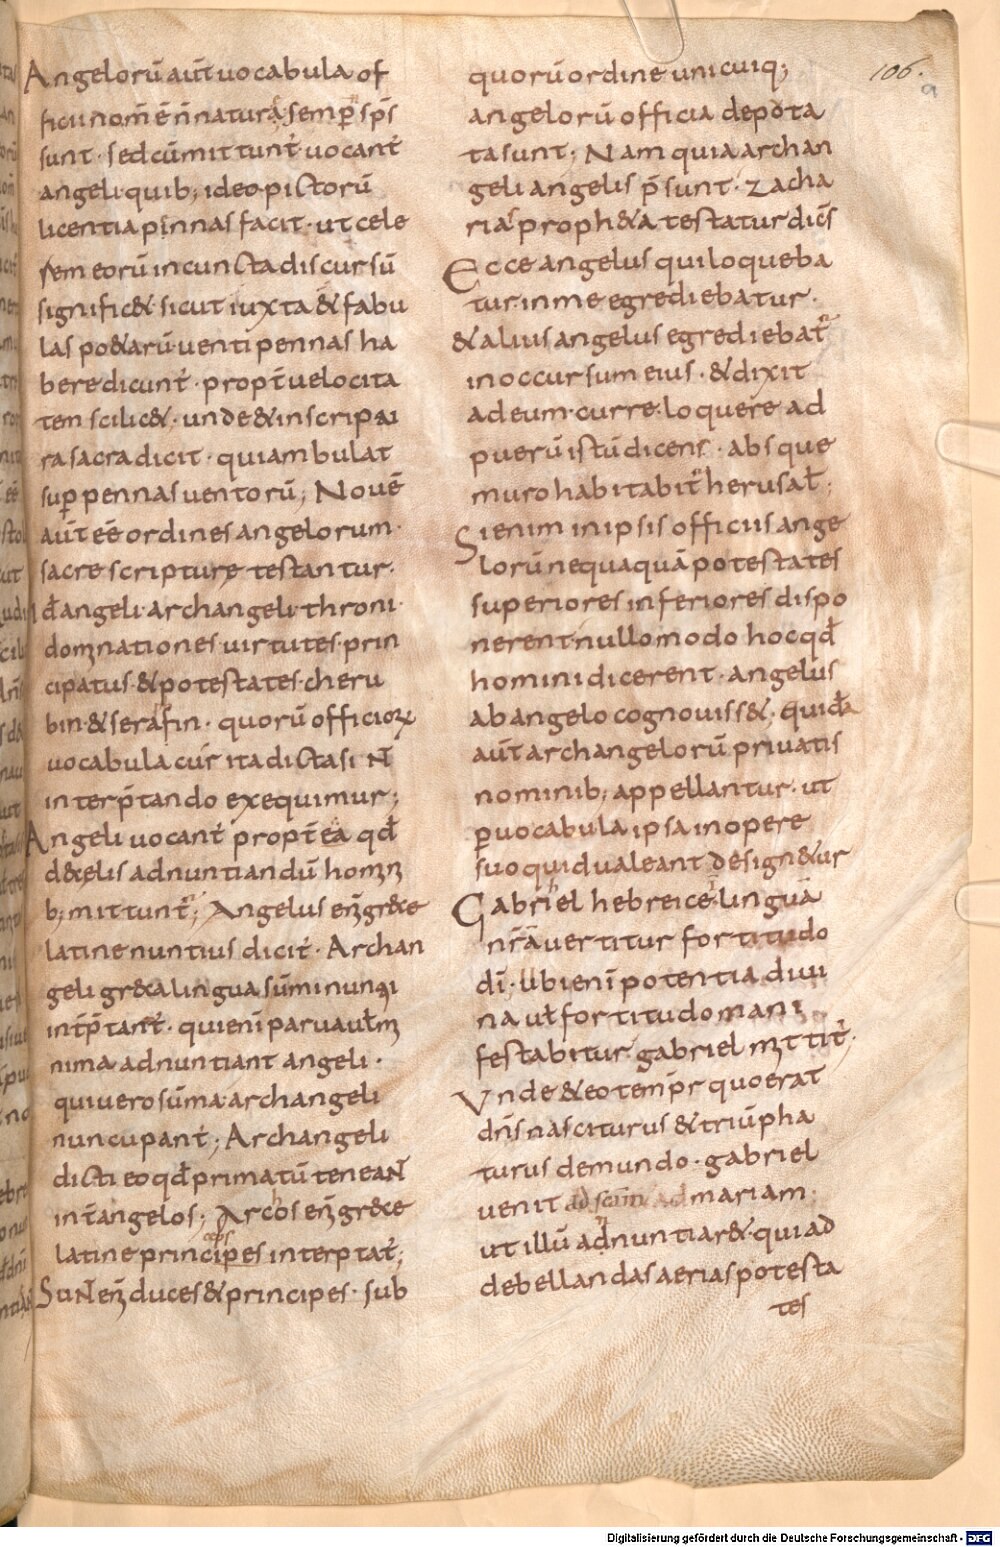 Angelorū aūt uocabula of
ficii nom̄ ē n̄ natura; semp̄ sp̄s
sunt · sed cū mittunt᷑ uocant᷑
angeli · quib; ideo pictorū
licentia pinnas facit · ut cele
rem eorū in cuncta discursū
signific& · sicut iuxta & fabu
las po&arū uenti pennas ha
bere dicunt᷑ · propt̄ uelocita
tem scilic& · unde & in scriptu
ra sacra dicit · qui ambulat
sup̱ pennas uentorū; Nouē
aūt eē ordines angelorum ·
sacre scripture testantur ·
id ÷ angeli · archangeli · throni ·
dominationes · uirtutes · prin
cipatus · & potestates · cheru
bin · & serafin · quorū officioꝝ
uocabula cur ita dicta sint
interp̄tando exequimur;
Angeli uocant᷑ propt̄ ea qd̄
d& celis ad nuntiandū homini
b; mittunt᷑; Angelus eni grece
latine nuntius dicit᷑ · Archan
geli gr&ca lingua sūmi nuntii
int̄p̄tant᷑ · qui enī parua ul̄ mi
nima adnuntiant angeli ·
qui uero sūma archangeli
nuncupant᷑; Archangeli
dicti eo qd̄ primatū teneant
int̄ angelos; Arcos eni gr&ce
latine princeps interp̄tat᷑;
Sunt eni duces & principes · sub
quorū ordine unicuiq;
angelorū officia depota
ta sunt; Nam quia archan
geli angelis p̄sunt · zacha
rias proph&a testatur dic̄s
Ecce angelus qui loqueba
tur in me egrediebatur ·
& alius angelus egrediebat᷑
in occursum eius · & dixit
ad eum · curre · loquere ad
puerū istū dicens · absque
muro habitabit᷑ herusal̄;
Si enim in ipsis officiis ange
lorū nequaquā potestates
superiores inferiores dispo
nerent · nullo modo hoc qd̄
homini dicerent · angelus
ab angelo cognouiss& · quidā
aūt archangelorū priuatis
nominib; appellantur · ut
p̱ uocabula ipsa in opere
suo quid ualeant design&ur
Gabriel hebreice · linguā
nr̄ā uertitur fortitudo
dī · Ubi enī potentia diui
na ul̄ fortitudo mani
festabitur gabriel mittit᷑ ·
Vnde & eo tempr quo erat
dn̄s nasciturus & triūpha
turus de mundo · gabriel
uenit ad scām ad mariam ·
ut illū adnuntiar& · qui ad
debellandas aerias potesta
tes
106.
Digitalisierung gefördert durch die Deutsche Forschungsgemeinschaft - DFG